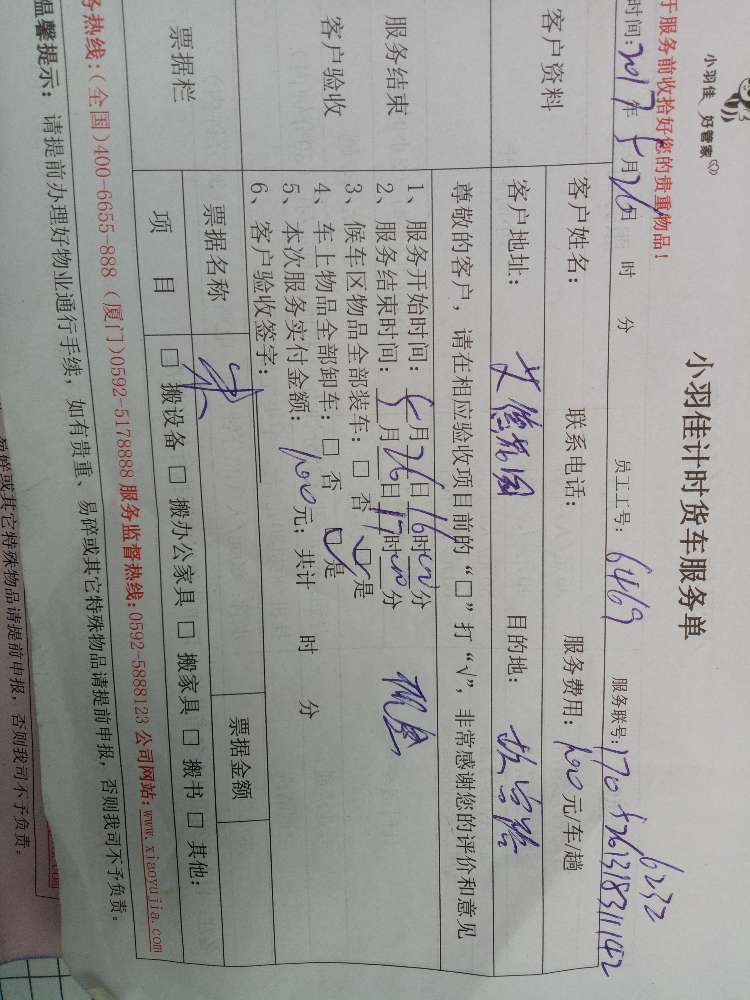 小羽佳 好管家
小羽佳计时货车服务单
于服务前收拾好您的贵重物品!
时间: 2017年5月26日 时 分 员工工号: 6469 服务联号:
客户资料
客户姓名: 联系电话: 服务费用: 100元/车/趟
客户地址: 目的地:
服务结束
客户验收
尊敬的客户，请在相应验收项目前的“□”打“√”, 非常感谢您的评价和意见
1、服务开始时间: 5月26日16时00分
2、服务结束时间: 5月26日17时00分
3、候车区物品全部装车: □ 否 □ 是
4、车上物品全部卸车: □ 否 □ 是
5、本次服务实付金额: 100元; 共计 时 分
6、客户验收签字:
票据栏
票据名称 票据金额
项 目 □ 搬设备 □ 搬办公家具 □ 搬家具 □ 搬书 □ 其他:
务热线: (全国)400-6655-888 (厦门)0592-5178888 服务监督热线: 0592-5888123 公司网站: www.xiaoyujia.com
温馨提示: 请提前办理好物业通行手续，如有贵重、易碎或其它特殊物品请提前申报, 否则我司不予负责。
易碎或其它特殊物品请提前申报, 否则我司不予负责。